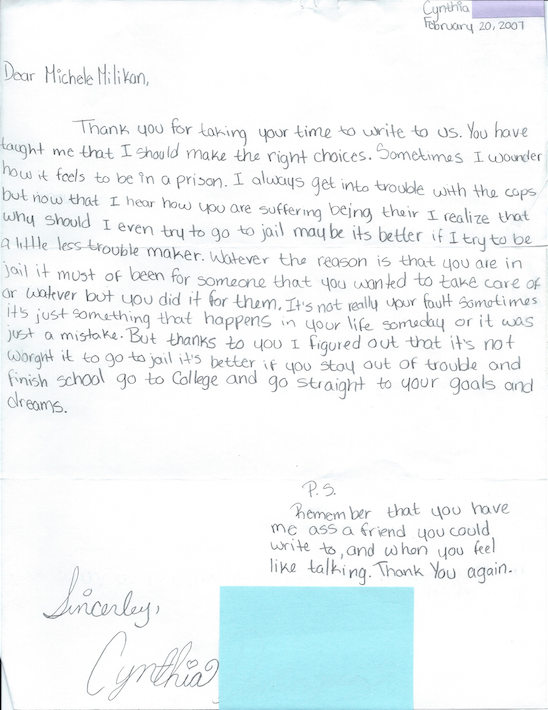 Cynthia
February 20, 2007
Dear Michele Milikan,
Thank you for taking your time to write to us. You have
taught me that I should make the right choices. Sometimes I wounder
how it feels to be in a prison. I always get into trouble with the cops
but now that I hear how you are suffering being their I realize that
why should I even try to go to jail maybe its better if I try to be
a little less trouble maker. Watever the reason is that you are in
jail it must of been for someone that you wanted to take care of
or watever but you did it for them. It's not really your fault somotimes
it's just something that happens in your life someday or it was
just a mistake. But thanks to you I figured out that it's not
worght it to go to jail it's better if you stay out of trouble and
finish school go to College and go straight to your goals and
dreams.
P.S.
Remember that you have
me ass a friend you could
write to, and when you feel
like talking. Thank You again.
Sincerley,
Cynthia